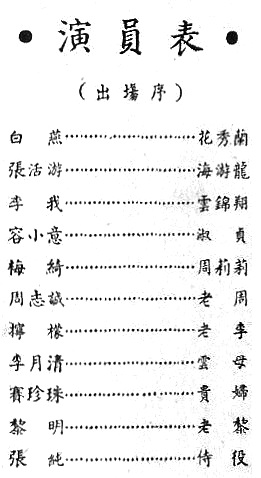 • 演員表 •
(出場序)
白燕……………………花秀蘭
張活游……………………海游龍
李我……………………雲錦翔
容小意……………………淑貞
梅綺……………………周莉莉
周志誠……………………老周
檸檬……………………老李
李月清……………………雲母
賽珍珠……………………貴婦
黎明……………………老黎
張純……………………侍役